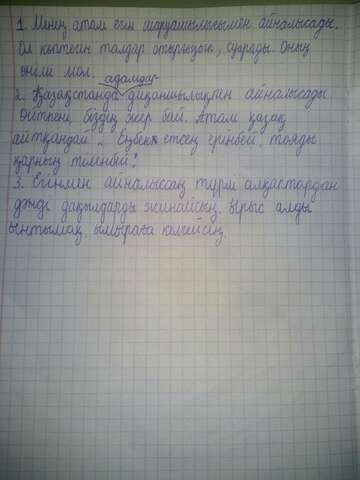 1. Менің атам егін шаруашылығымен айналысады.
Ол көптеген талдар отырғызып, суарады. Оның
өнімі мол.
адамдар
2. Қазақстанда диқаншылықпен айналысады
Өйткені, біздің жер бай. Атам қазақ
айтқандай „ Еңбек етсең ерінбей, тояды
қарның тіленбей!
3. Егінмен айналыссаң түрлі алқаптардан
дәнді дақылдарды жинайсың. Ырыс алды
ынтымақ, ымыраға келгейсің.